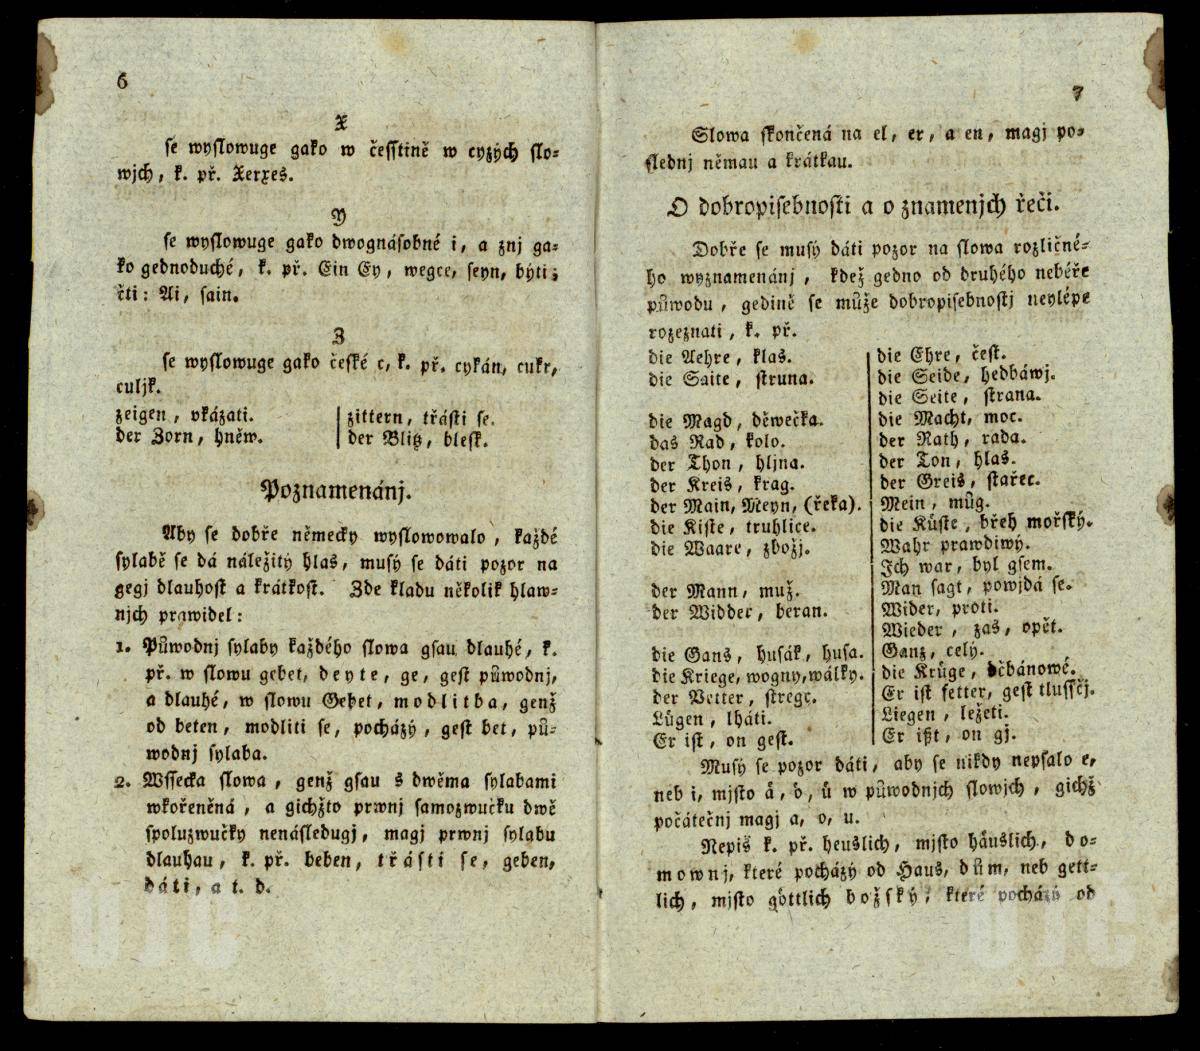 6
X
se wyslowuge gako w česstině w cyzých slo=
wjch, k. př. Xerxes.
Y
se wyslowuge gako dwognásobné i, a znj ga=
ko gednoduché, k. př. Ein Ey, wegce, seyn, býti;
čti: Ai, sain.
Z
se wyslowuge gako české c, k. př. cykán, cukr,
culjk.
zeigen, vkázati. | zittern, třásti se.
der Zorn, hněw. | der Blitz, blesk.
Poznamenánj.
Aby se dobře německy wyslowowalo, každé
sylabě se dá náležitý hlas, musý se dáti pozor na
gegj dlauhost a krátkost. Zde kladu několik hlaw=
njch prawidel:
1. Půwodnj sylaby každého slowa gsau dlauhé, k.
př. w slowu gebet, deyte, ge, gest půwodnj,
a dlauhé, w slowu Gebet, modlitba, genž
od beten, modliti se, pocházý, gest bet, pů=
wodnj sylaba.
2. Wssecka slowa, genž gsau s dwěma sylabami
wkořeněná, a gichžto prwnj samozwučku dwě
spoluzwučky nenásledugj, magj prwnj sylabu
dlauhau, k. př. beben, třásti se, geben,
dáti, a t. d.
7
Slowa skončená na el, er, a en, magj po=
slednj němau a krátkau.
O dobropisebnosti a o znamenjch řeči.
Dobře se musý dáti pozor na slowa rozličné=
ho wyznamenánj, kdež gedno od druhého nebéře
půwodu, gedině se může dobropisebnostj neylépe
rozeznati, k. př.
die Aehre, klas. | die Ehre, čest.
die Saite, struna. | die Seide, hedbáwj.
die Seite, strana.
die Magd, děwečka. | die Macht, moc.
das Rad, kolo. | der Rath, rada.
der Thon, hljna. | der Ton, hlas.
der Kreis, krag. | der Greis, stařec.
der Main, Meyn, (řeka). | Mein, můg.
die Kiste, truhlice. | die Küste, břeh mořský.
die Waare, zbožj. | Wahr prawdiwý.
Ich war, byl gsem.
der Mann, muž. | Man sagt, powjdá se.
der Widder, beran. | Wider, proti.
Wieder, zas, opět.
die Gans, husák, husa. | Ganz, celý.
die Kriege, wogny, wálky. | die Krüge, džbánowé.
der Vetter, stregc. | Er ist fetter, gest tlussčj.
Lügen, lháti. | Liegen, ležeti.
Er ist, on gest. | Er ißt, on gj.
Musý se pozor dáti, aby se nikdy nepsalo e,
neb i, mjsto ä, ö, ü w půwodnjch slowjch, gichž
počátečnj magj a, o, u.
Nepiš k. př. heuslich, mjsto häuslich, do=
mownj, které pocházý od Haus, dům, neb gett=
lich, mjsto göttlich božský, které pocházý od